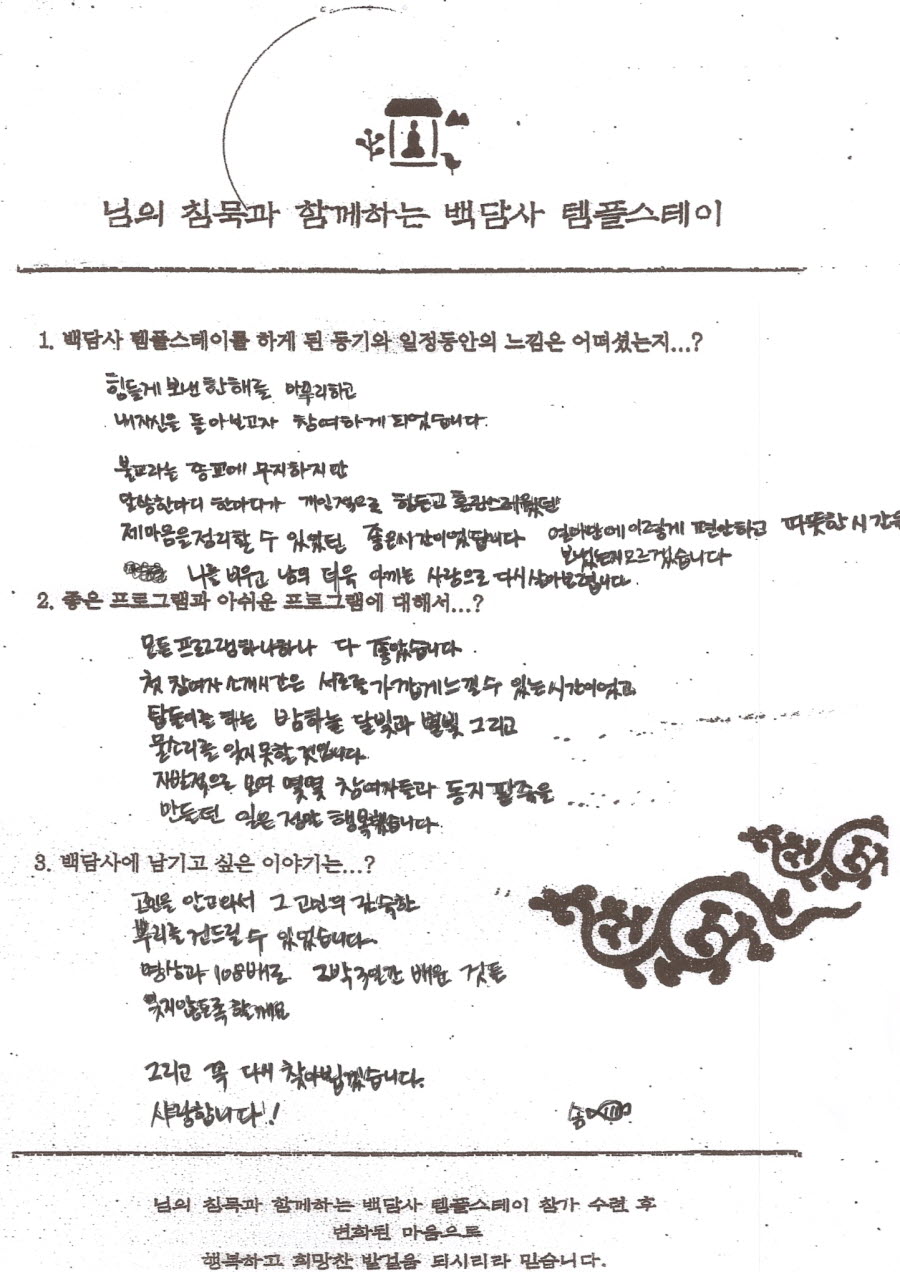 님의 침묵과 함께하는 백담사 템플스테이
1. 백담사 템플스테이를 하게 된 동기와 일정동안의 느낌은 어떠셨는지...?
힘들게 보낸 한해를 마무리하고
내자신을 돌아보고자 참여하게 되었습니다.
불교라는 종교에 무지하지만
말씀한마디 한마디가 개인적으로 힘든고 혼란스러웠던
제마음을 정리할 수 있었던 좋은시간이었답니다 얼마만에 이렇게 편안하고 따뜻한 시간을
보냈는지모르겠습니다
나를 비우고 남의 더욱 아끼는 사람으로 다시 살아보렵니다.
2. 좋은 프로그램과 아쉬운 프로그램에 대해서...?
모든 프로그램하나하나 다 좋았습니다.
첫 참여자 소개시간은 서로를 가깝게느낄수 있는시간이었고
탑돌이를 하는 밤하늘 달빛과 별빛 그리고
물소리를 잊지못할것입니다.
자발적으로 모여 몇몇 참여자들과 동지 팥죽을
만든던 일은 정말 행복했습니다.
3. 백담사에 남기고 싶은 이야기는...?
고민을 안고와서 그 고민의 깊숙한
뿌리를 건드릴 수 있었습니다.
명상과 108배로 2박3일간 배운 것들
잊지않도록할게요
그리고 꼭 다시 찾아뵙겠습니다.
사랑합니다!!
님의 침묵과 함께하는 백담사 템플스테이 참가 수련 후
변화된 마음으로
행복하고 희망찬 발걸음 되시리라 믿습니다.